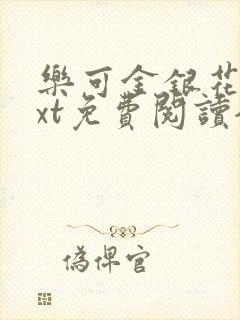 樂可金銀花
xt免費閱讀
偽俾官